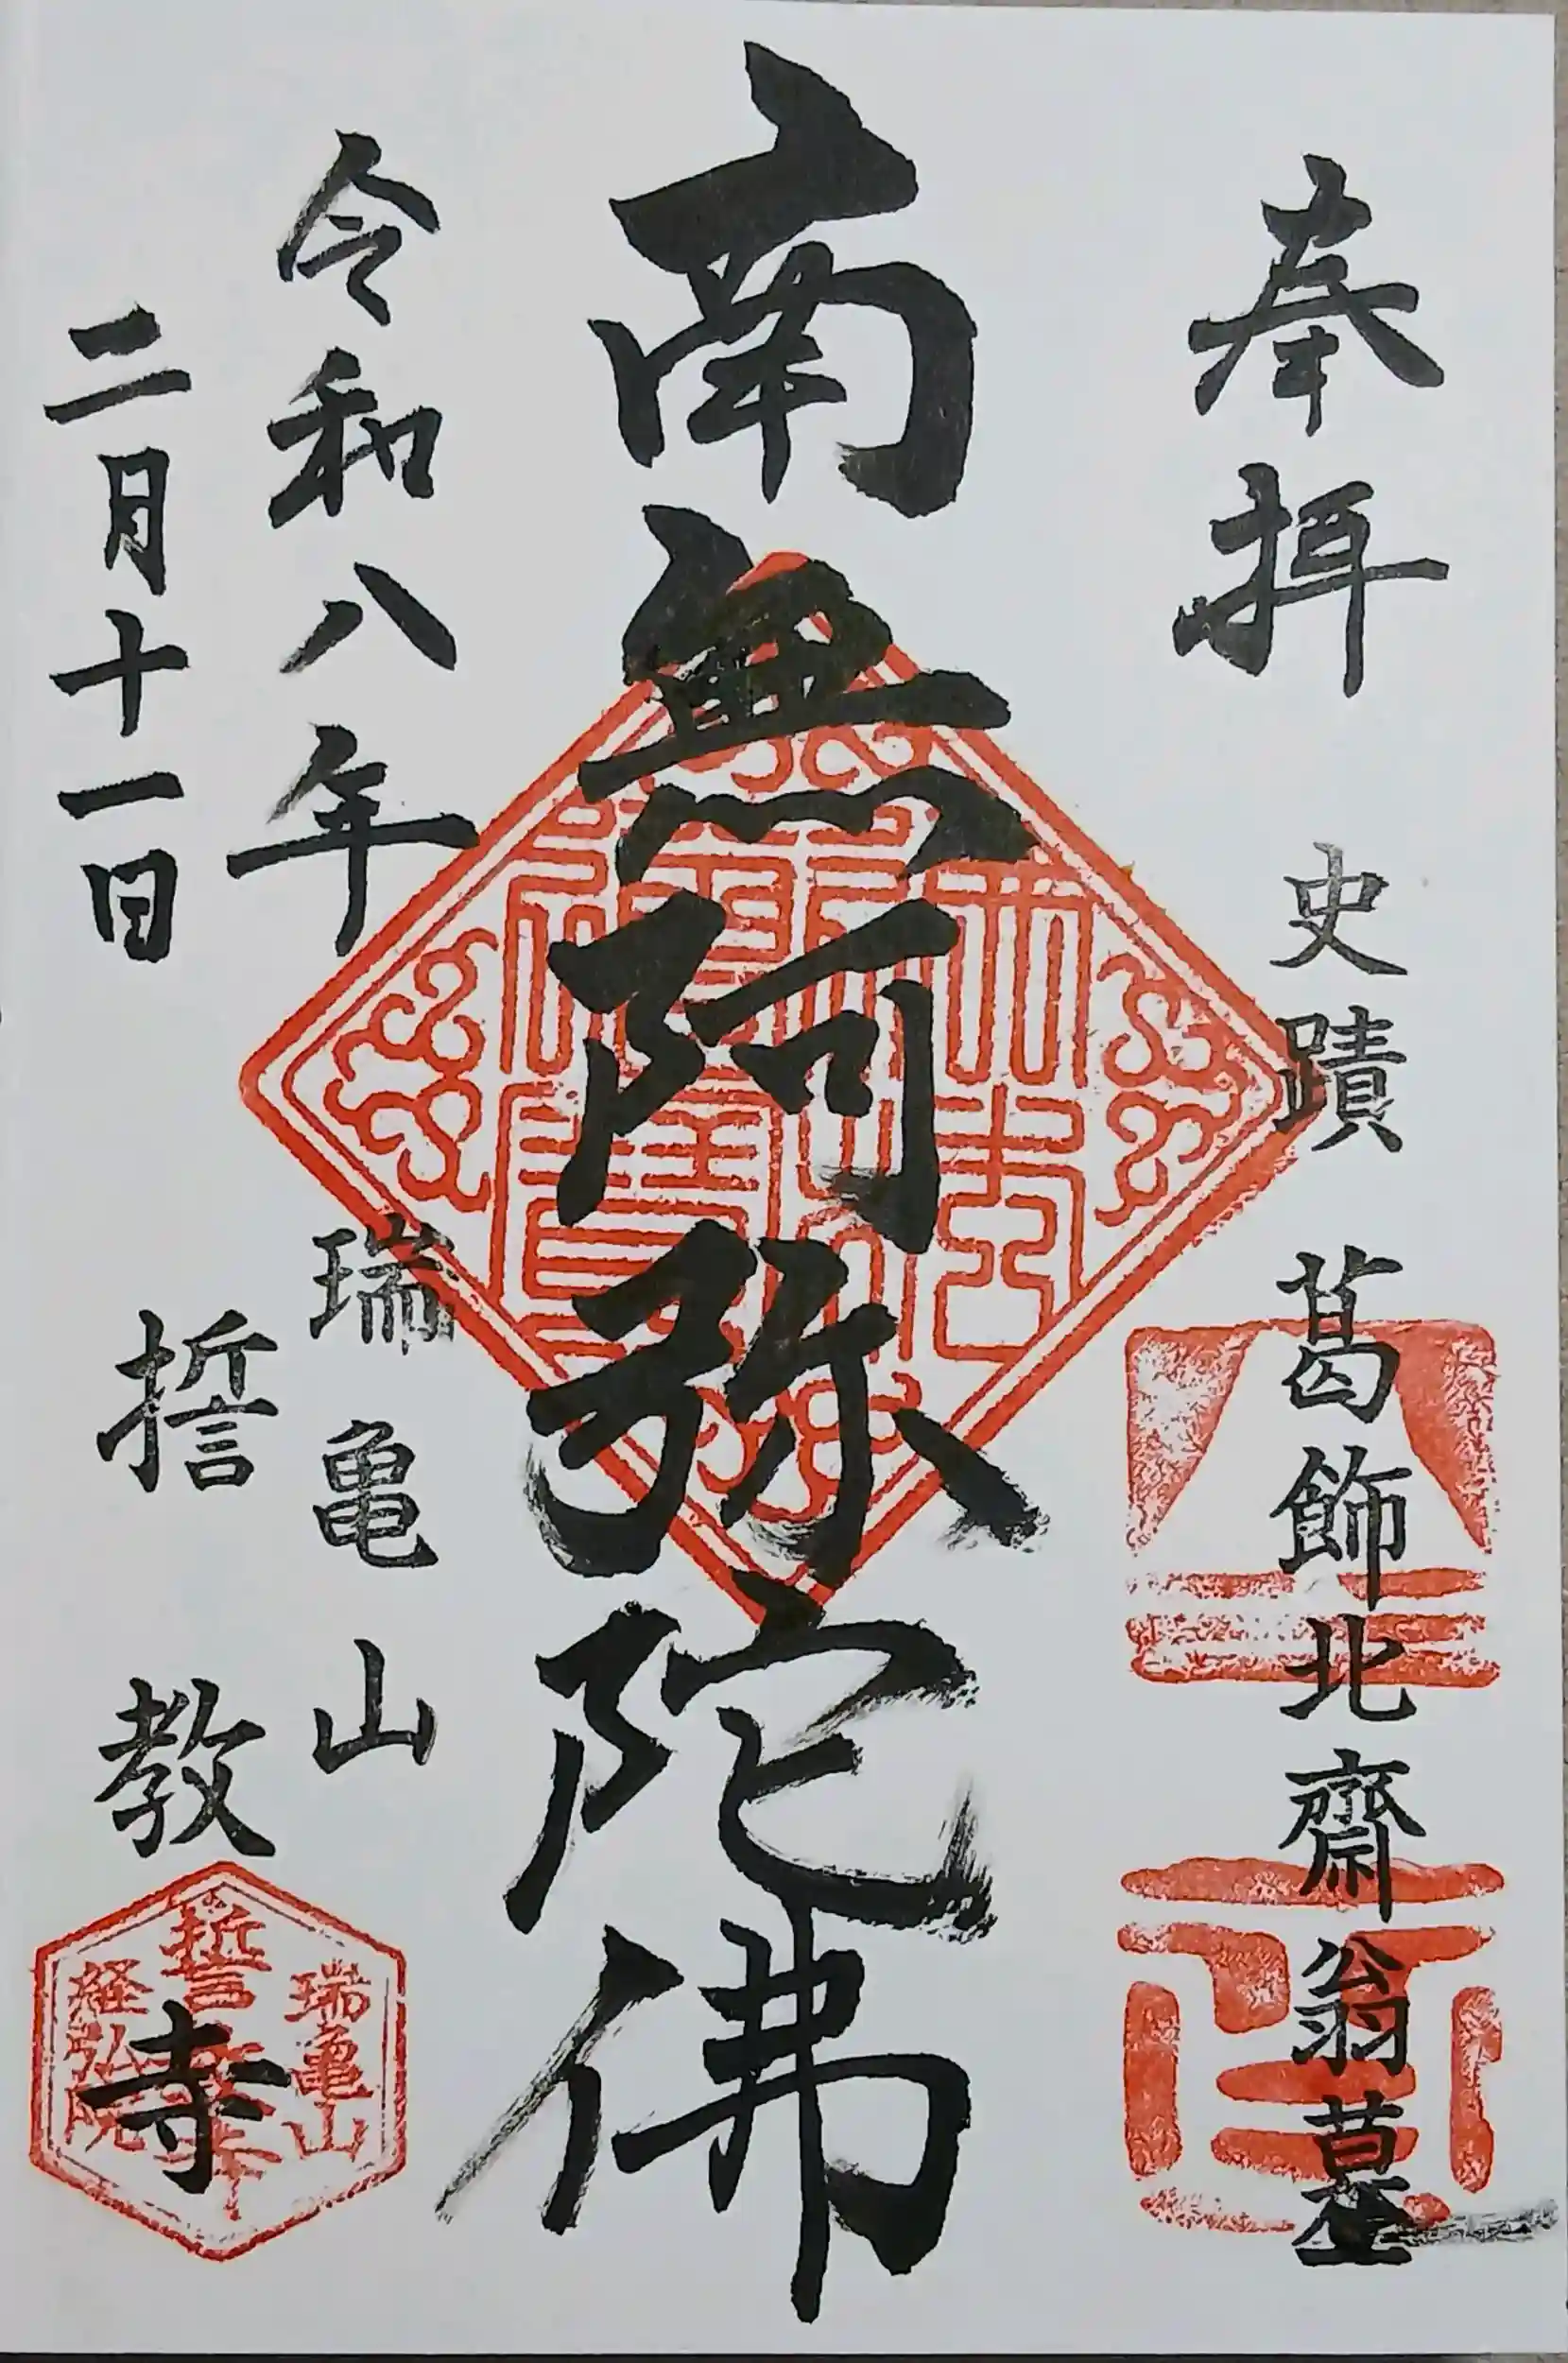 奉拝
史蹟 葛飾北齋翁墓
南無阿弥陀佛
令和八年
二月十一日
瑞亀山
誓教寺
瑞亀山